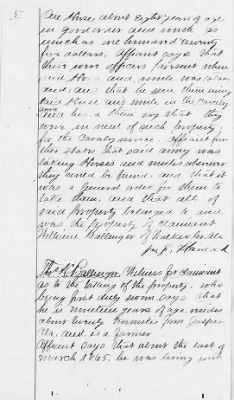 5
One Horse, about eight years of age
in good order and worth as
much as one hundred & twenty
five dollars, affiant says that
there were officers present when
said Horse and mule was taken
and that he seen them using
said Horse and mule in the Cavalry
and heard them say that they
were in need of such property
for the Cavalry service. Affiant further
states that said army was
taking Horses and mules wherever
they could be found, and that it
was a general order for them to
take them, and that all of
said property belonged to and
was the property of claimant
William Ballenger of Walker Co Ala
Ballenger, Witness for claimant
as to the taking of the property, who
being first duly sworn says that
he is nineteen years of age, resides
about twenty two miles from Jasper
Ala. and is a farmer
affiant says that about the last of
March 1865. he was living with